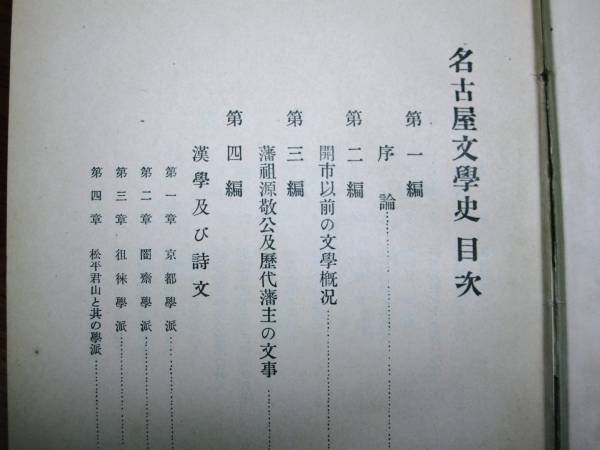 名古屋文學史 目次
第一編
序論……………
第二編
開市以前の文學概况……………
第三編
藩祖源敬公及歷代藩主の文事……
第四編
漢學及び詩文
第一章 京都學派……………
第二章 闇齋學派……………
第三章 徂徠學派……………
第四章 松平君山と其の學派……………